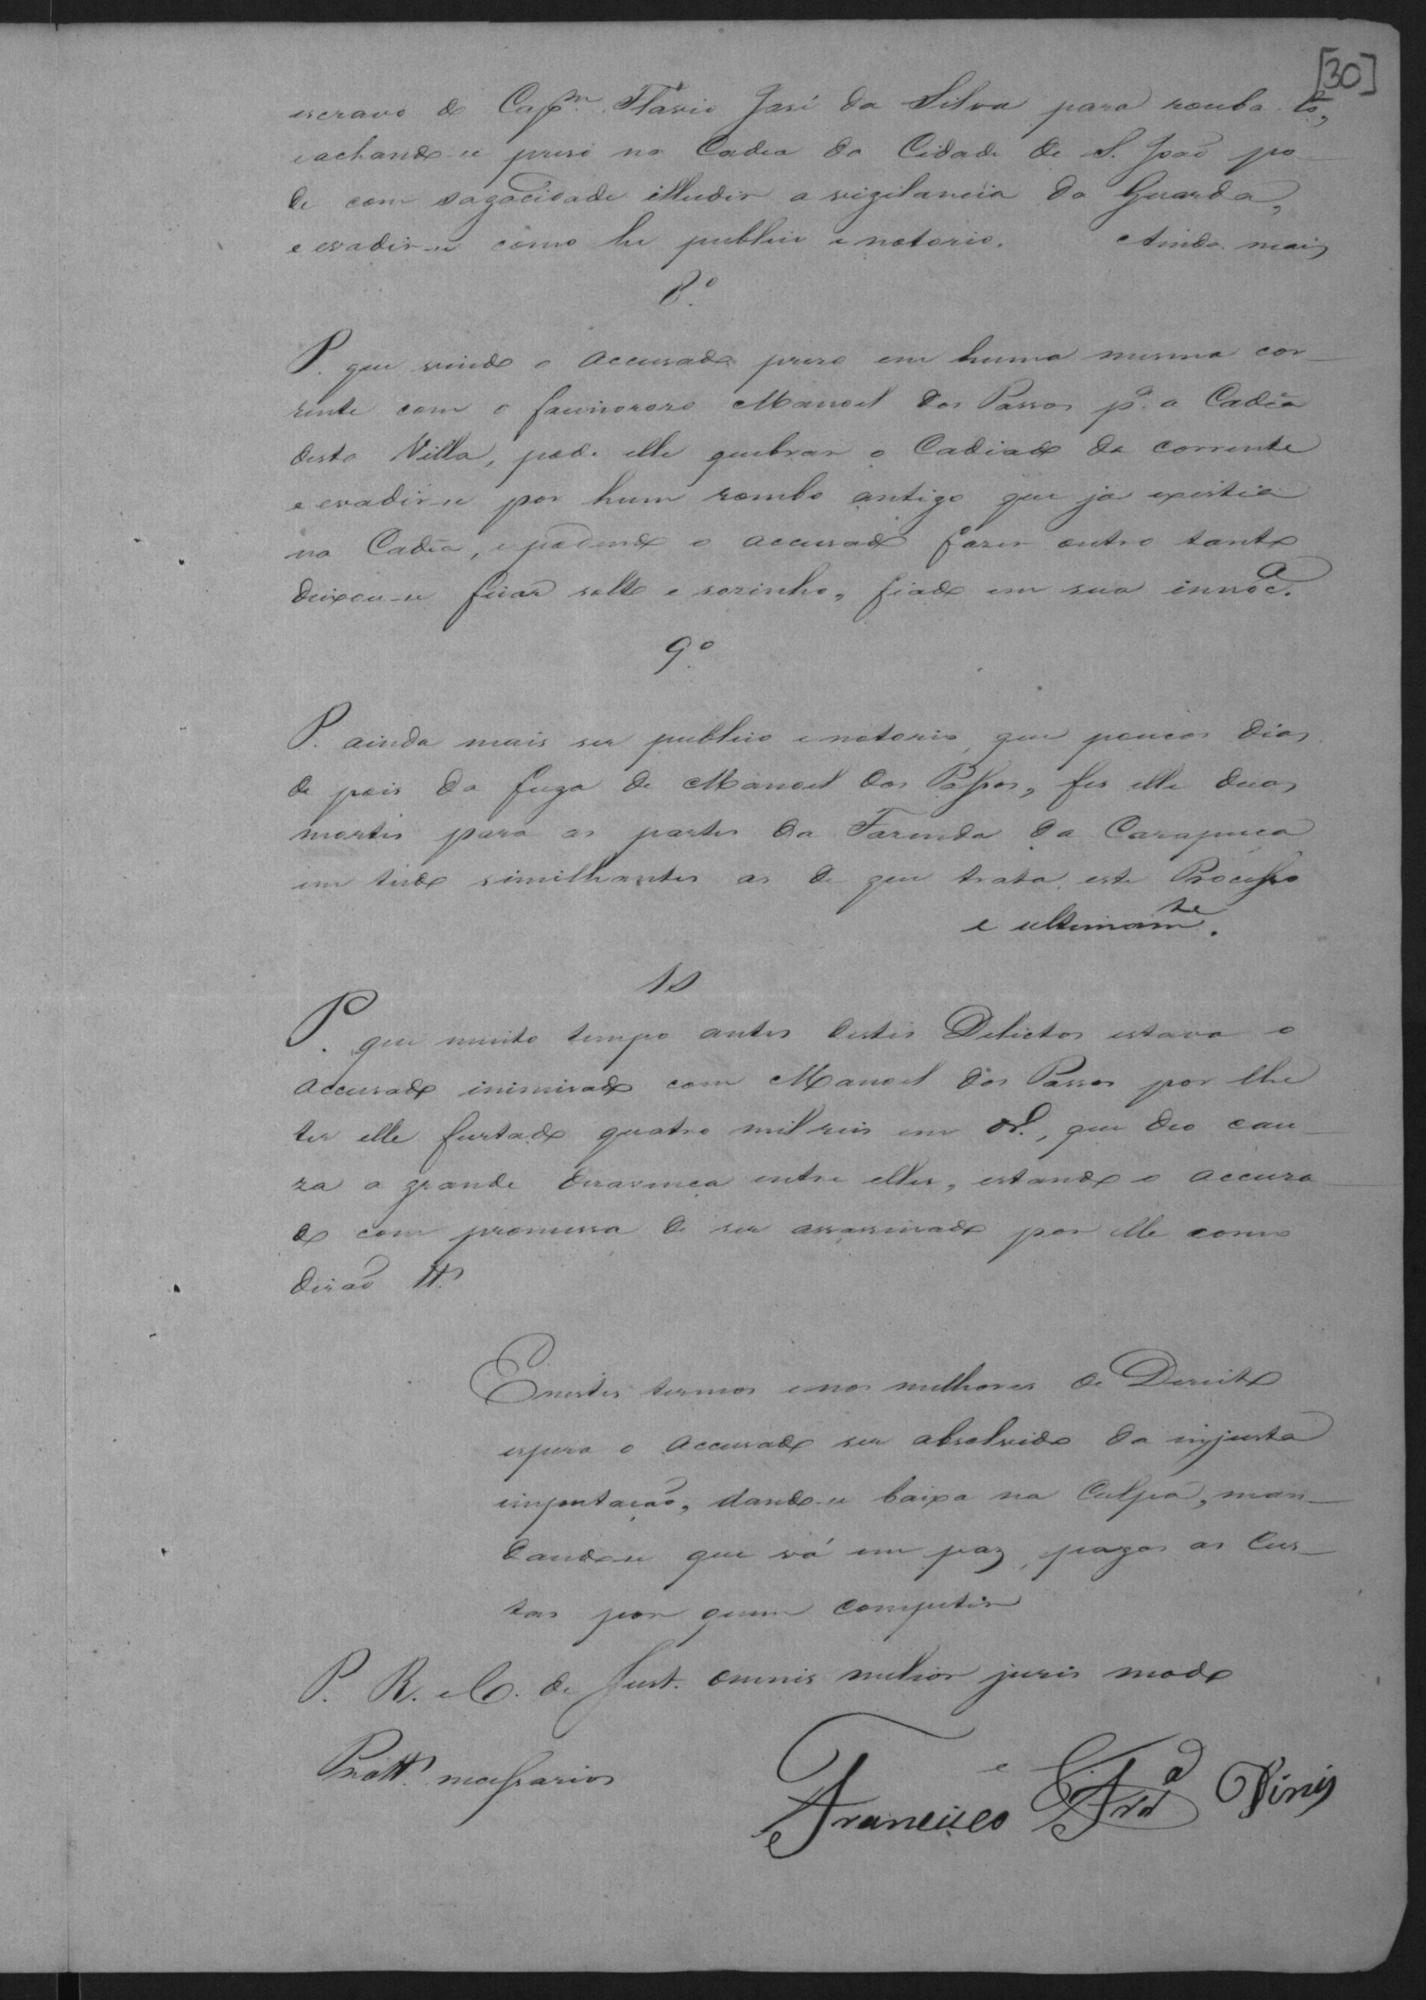 [30]
escravo do Cap.m Flavio José da Silva para rouba-lo,
e achando-se preso na Cadea da Cidade de S. João po-
de com sagacidade illudir a vigilancia da Guarda,
e evadir-se como he publico e notorio. Ainda mais
8.º
P. que vindo o accusado preso em huma mesma cor-
rente com o facinoroso Manoel dos Passos p.a a Cadêa
desta Villa, pode elle quebrar o Cadiado da corrente
e evadir-se por hum rombo antigo que já existia
na Cadêa, e podendo o accusado fazer outro tanto
deixou-se ficar solto e sozinho, fiado em sua innoc.a
9.º
P. ainda mais ser publico e notorio, que poucos dias
de pois da fuga de Manoel dos Passos, fes elle duas
mortes para as partes da Fazenda da Carapuca
em tudo similhantes as de que trata este Processo
e ultimam.te
10
P. que muito tempo antes destes Delictos estava o
accusado inimisado com Manoel dos Passos por lhe
ter elle furtado quatro mil reis em , que deo cau-
za a grande desavença entre elles, estando o accusa-
do com promessa de ser assassinado por elle como
dirão tt.
E nestes termos e nos melhores de Dereito
espera o accusado ser absolvido da injusta
imputação, dando-se baixa na Culpa, man-
dando-se que vá em paz, pagas as Cus-
tas por quem competir
P. R. e C. de Just. omnis melior juris modo
Prott. necessarios
Francisco Dinis